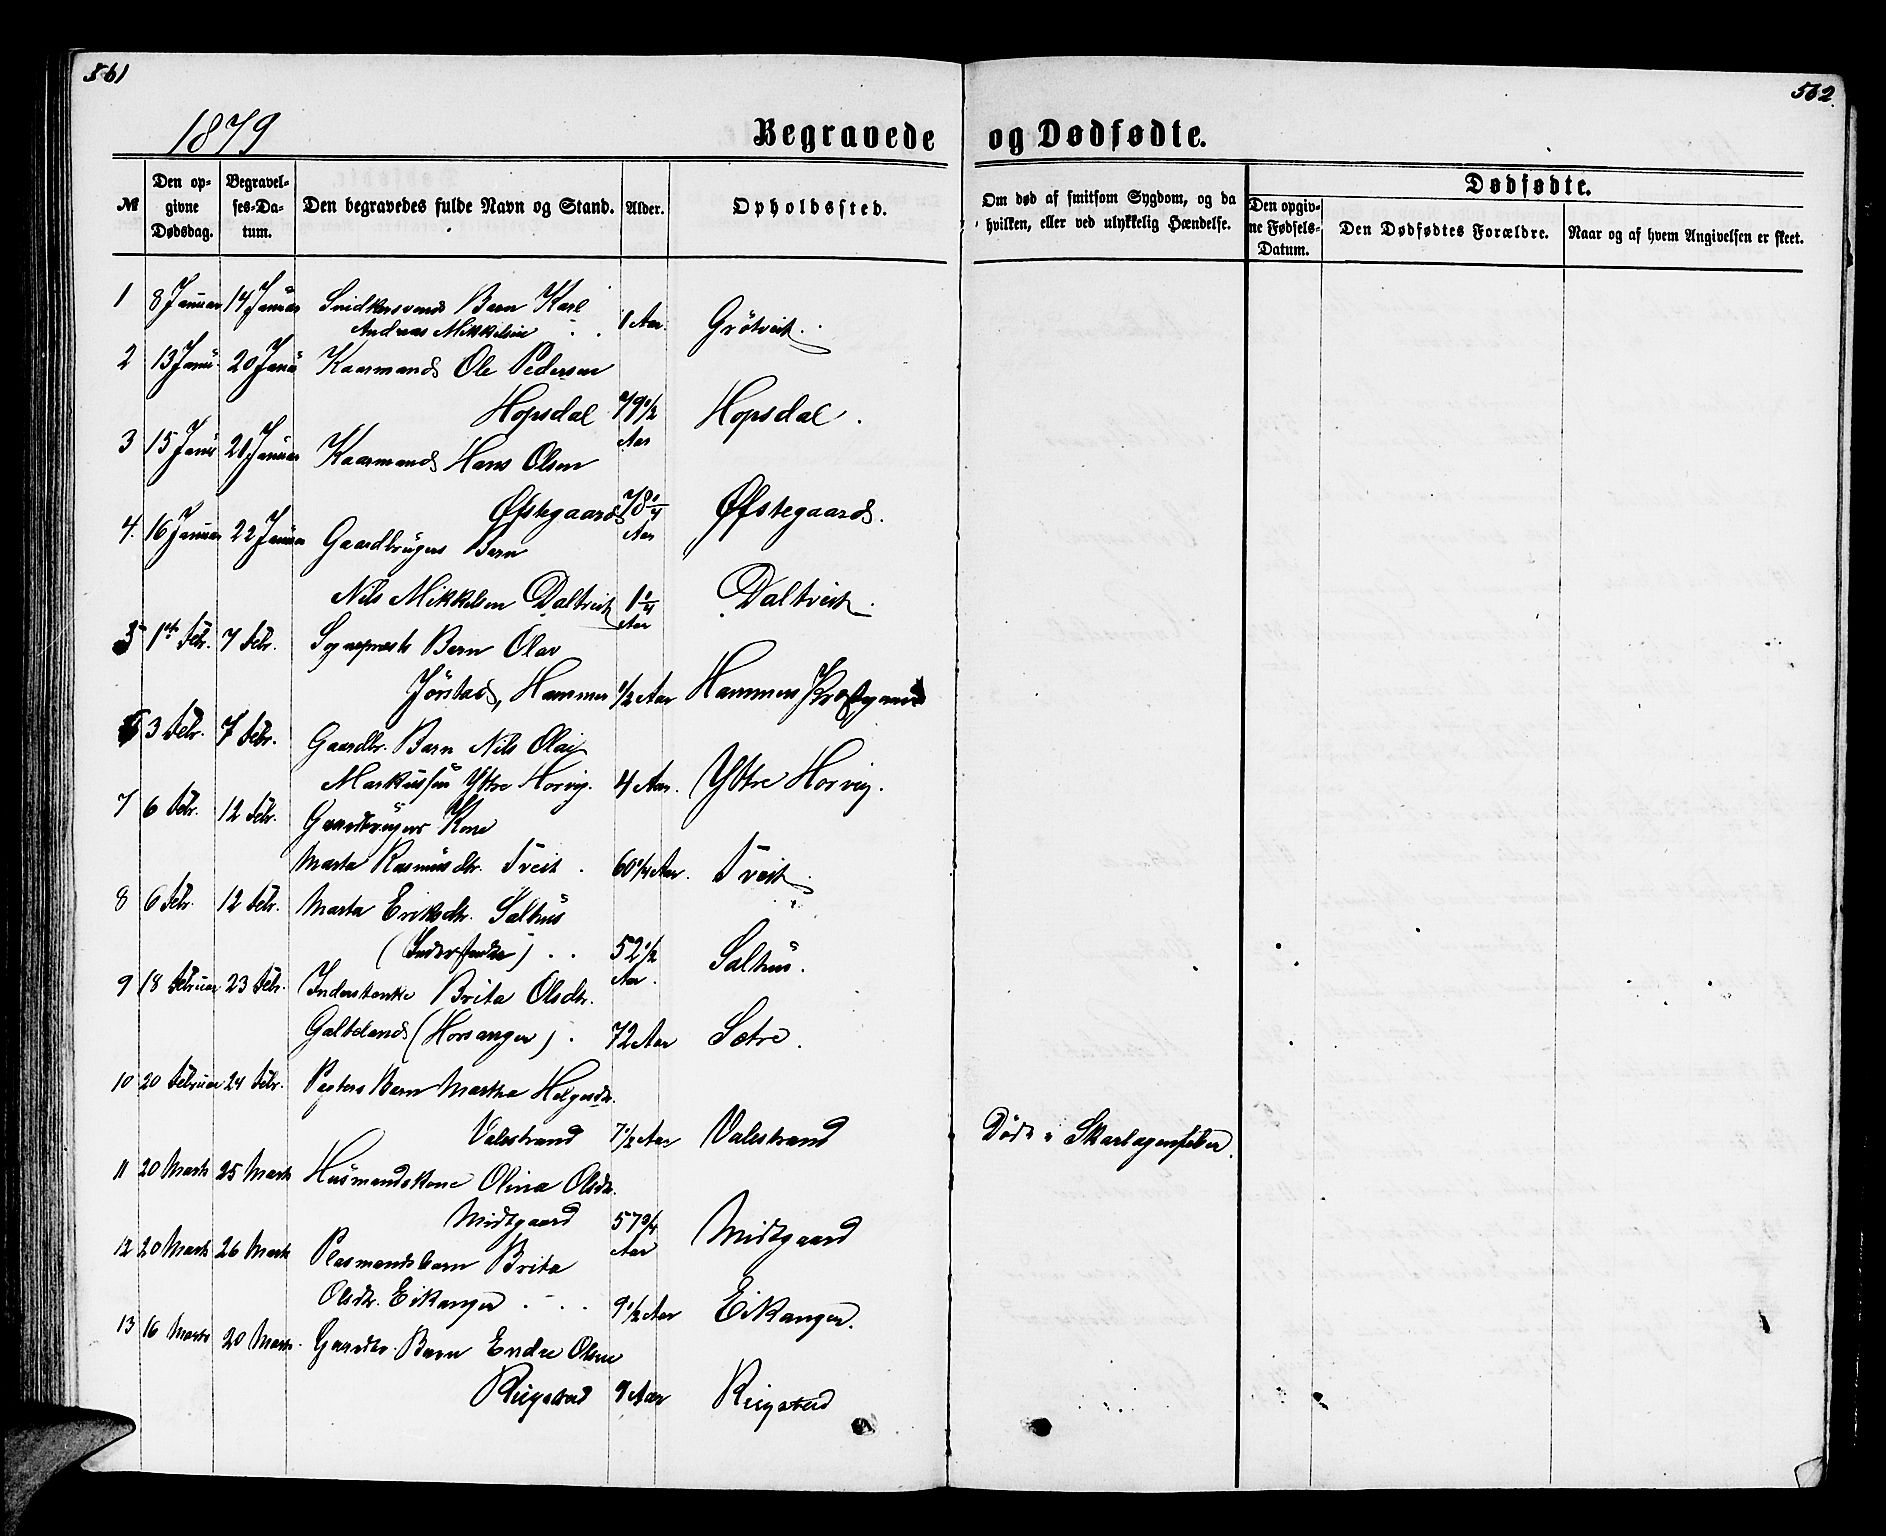 561
562
1879
Begravede og Dødfødte.
№
Den opgivne Dødsdag.
Begravelses-Datum.
Den begravedes fulde Navn og Stand.
Alder.
Opholdssted.
Om død af smitsom Sygdom, og da hvilken, eller ved ulykkelig Hændelse.
Dødfødte.
Den opgivne Fødsels-Datum.
Den Dødfødtes Forældre.
Naar og af hvem Angivelsen er skeet.
1 8 Januar 14 Januar Barn Karl
Andreas Mikkelsen 1 Aar. Grøtveit.
2 13 Janu. 20 Janu Kaarmand Ole Pedersen
Hopsdal 79 1/2 Aar Hopsdal.
3 15 Janu 20 Januar Kaarmand Hans Olsen
Øfstegaard 78 1/4 Aar Øfstegaard.
4. 16 Januar 22 Januar Gaardbrugers Barn
Nils Mikkelsen Daltveit 1 1/4 Aar Daltveit.
5 1ste Febr. 7 Febr. Sognepræsts Barn Olav
Jørstad, Hammer 1/2 Aar Hammers Præstgaard
6 3 Febr. 7 Febr. Gaardbr. Barn Nils Olai
Markussen Yttre Horvig. 4 Aar. Yttre Horvig.
7 6 Febr. 12 Febr. Gaardbrugers Kone
Marta Rasmusdtr. Tveit. 60 1/4 Aar. Tveit.
8 6 Febr. 12 Febr. Marta Eriksdtr. Salhus
52 1/2 Aar. Salhus.
9 18 Februar 23 Febr. Inderstenke Brita Olsdtr.
(Hosanger). 72 Aar Sætre.
10 20 Februar 24 Febr. Pgters Barn Martha Helgesdtr.
Valestrand 7 1/2 Aar Valestrand Døde af Skarlagensfeber.
11 20 Marts 25 Marts Husmandskone Olina Olsdtr.
Midtgaard 57 3/4 Aar Midtgaard
12 20 Marts 26 Marts Plasmandsbarn Brita
Olsdtr. Eikanger 9 1/2 Aar Eikanger.
13 16 Marts 20 Marts. Gaardbr. Barn Endre Olsen
Ruigstad 9 Aar Ruigstad